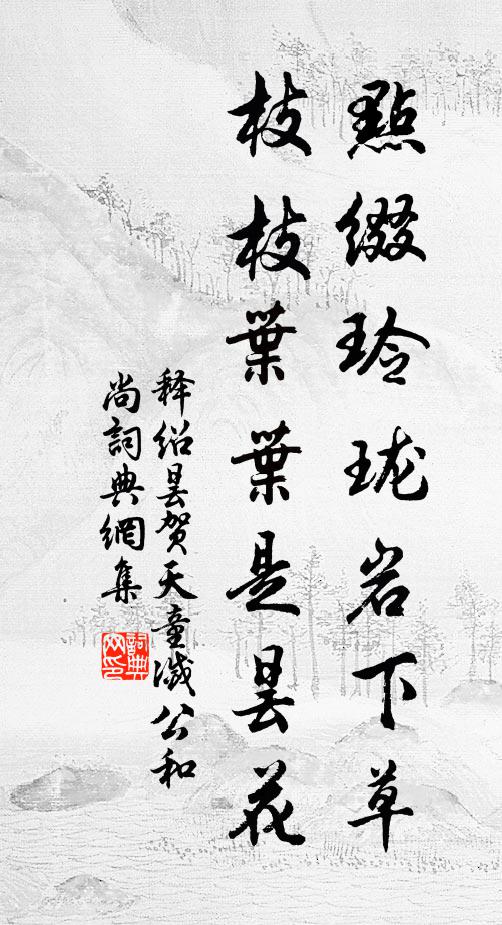 點缀玲珑岩下草
枝枝葉葉是昙花
释绍昙贺天童滅公和
尚詞典網集
詞典
网印